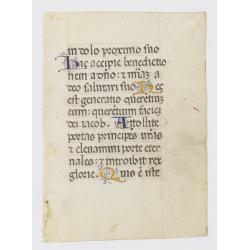 in dolo proximo suo
Hac accipie benedictio
nem a dño: ⁊ mĩaz a
deo salutari suo Hec
est generatio querẽtiuz
eum: querẽtium faciez
dei iacob. Attollite
portas principes vr̃as
⁊ eleuamini porte eter
nales: ⁊ introibit rex
glorie. Quis ẽ iste